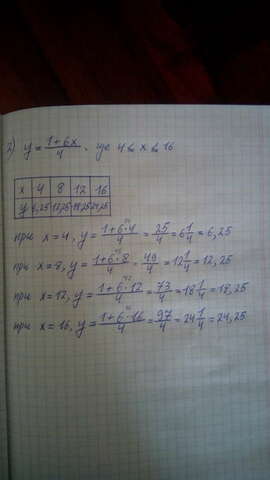 2) y = (1+6x)/4, де 4 ≤ x ≤ 16
x | 4 | 8 | 12 | 16
y | 6,25 | 12,25 | 18,25 | 24,25
при x=4, y = (1+6·4)/4 = 25/4 = 6 1/4 = 6,25
при x=8, y = (1+6·8)/4 = 49/4 = 12 1/4 = 12,25
при x=12, y = (1+6·12)/4 = 73/4 = 18 1/4 = 18,25
при x=16, y = (1+6·16)/4 = 97/4 = 24 1/4 = 24,25